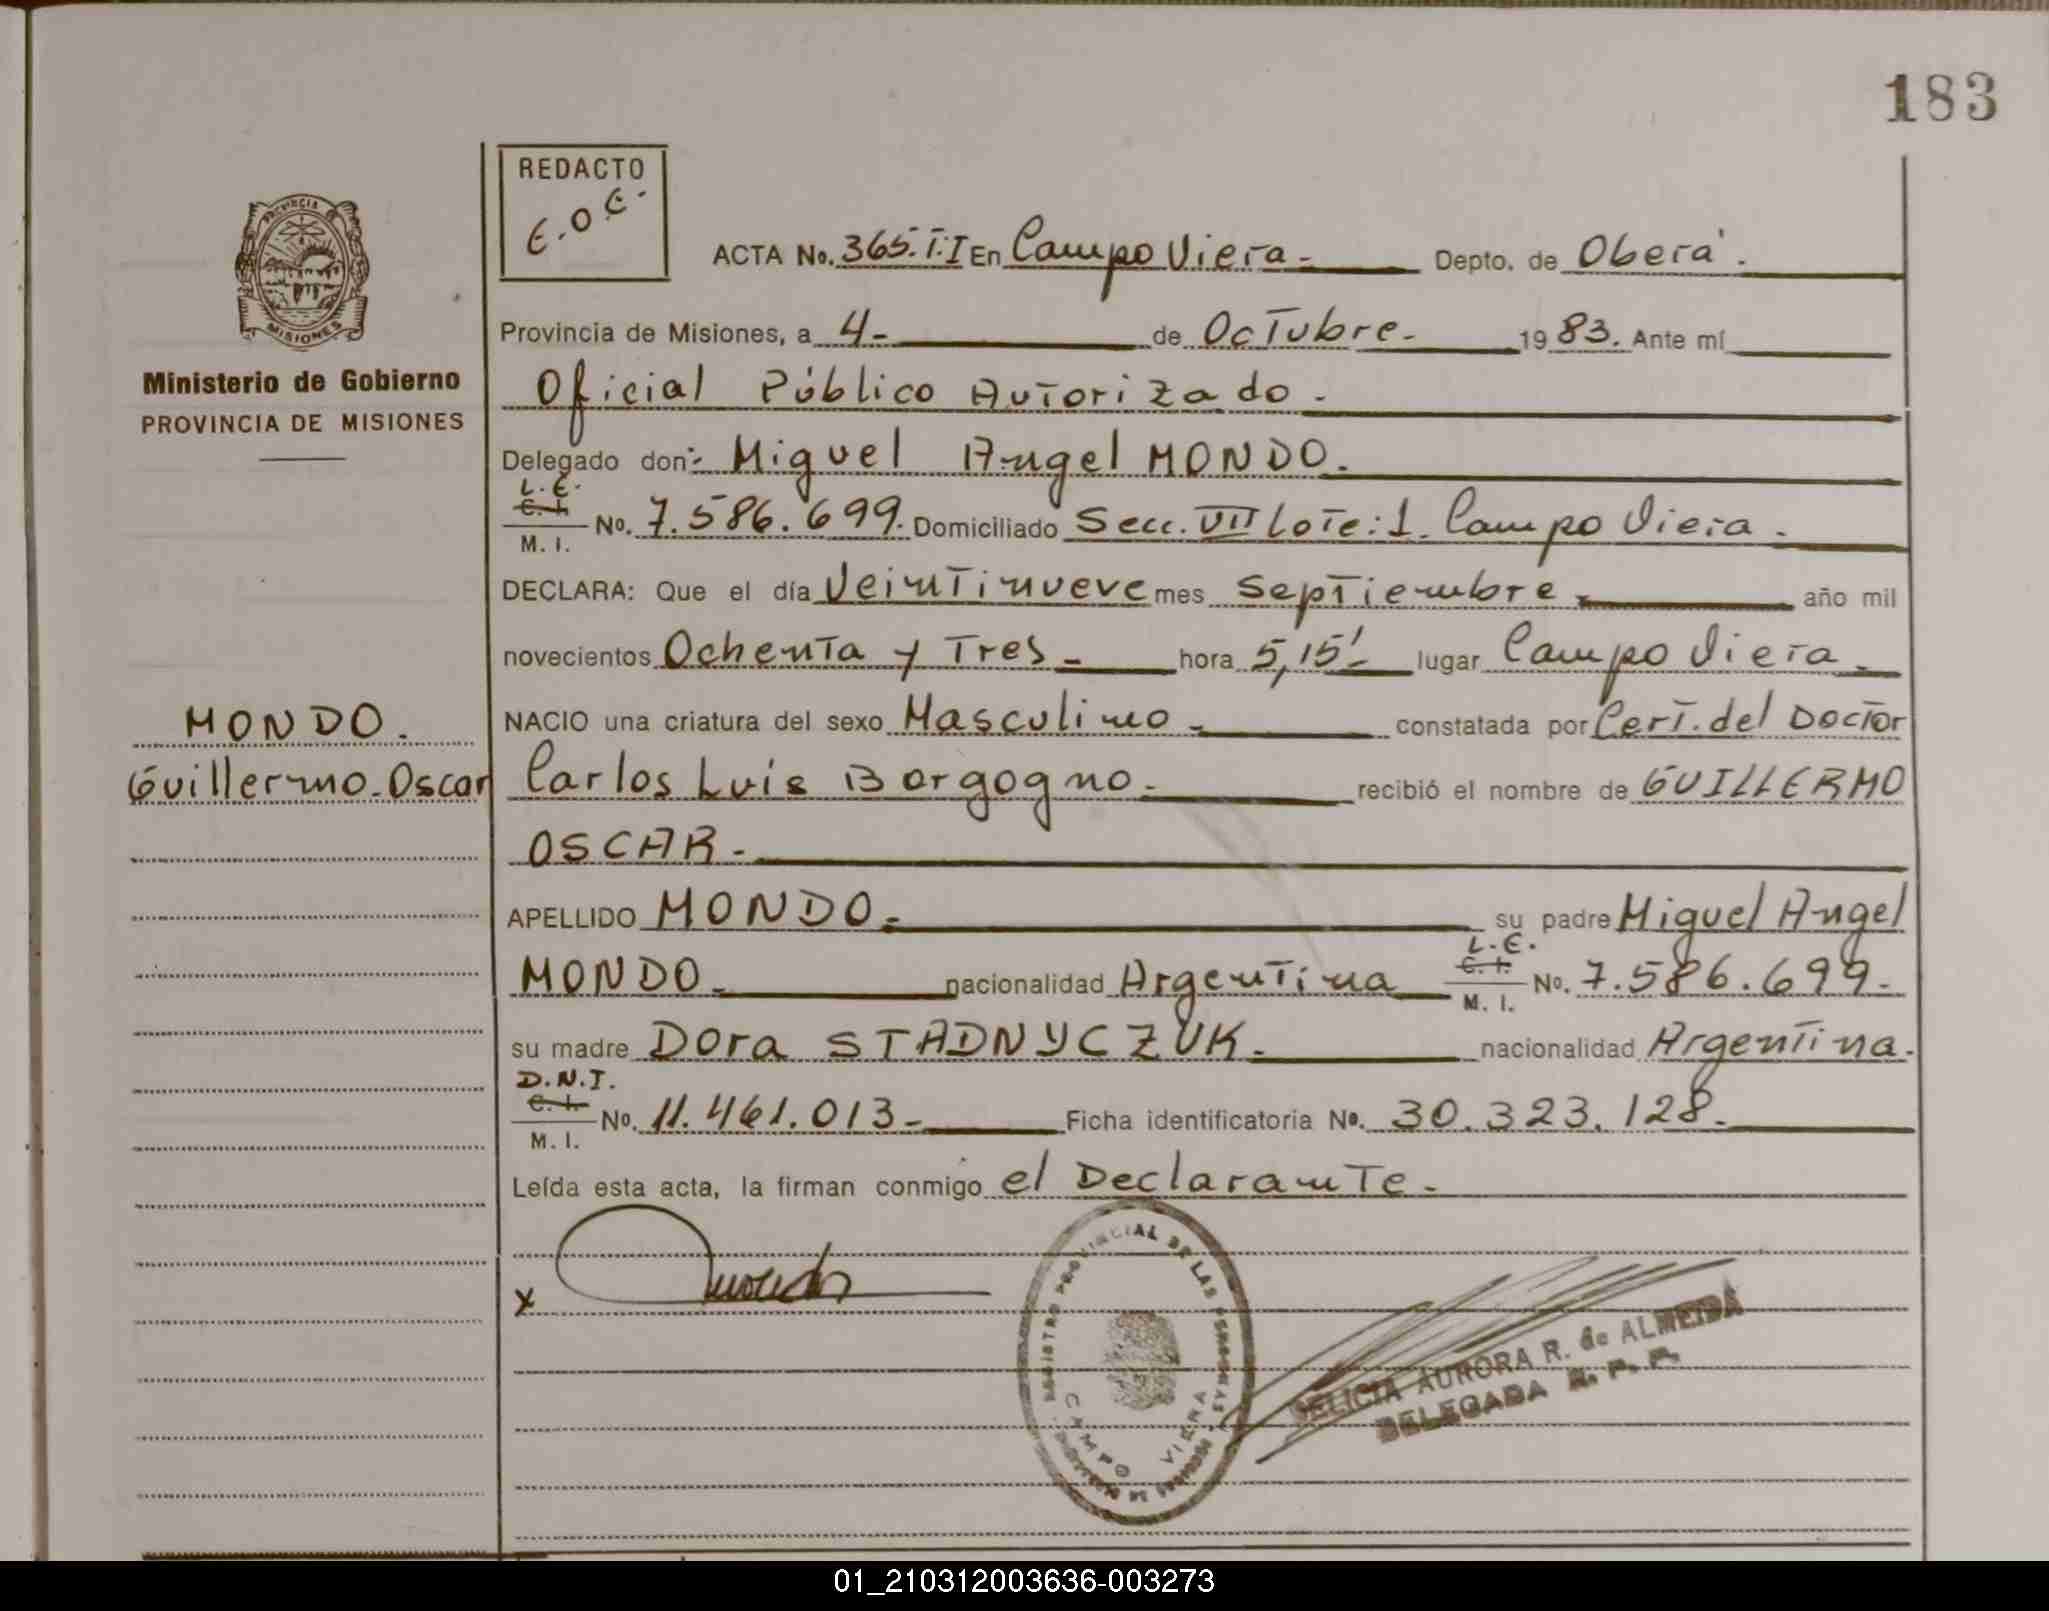 183
REDACTO
E.O.E.
PROVINCIA
MISIONES
ACTA No. 365.T.I En Campo Viera.- Depto. de Oberá.
Provincia de Misiones, a 4- de Octubre.- 1983. Ante mí
Ministerio de Gobierno
PROVINCIA DE MISIONES
Oficial Público Autorizado.-
Delegado don:- Miguel Angel MONDO.
L.E.
C. I.
M. I.
No. 7.586.699. Domiciliado Secc. VII Lote:1. Campo Viera.-
DECLARA: Que el día Veintinueve mes Septiembre.- año mil
novecientos Ochenta y Tres.- hora 5,15'- lugar Campo Viera.-
MONDO.
Guillermo-Oscar
NACIO una criatura del sexo Masculino.- constatada por Cert. del Doctor
Carlos Luis Borgogno.- recibió el nombre de GUILLERMO
OSCAR.-
APELLIDO MONDO.- su padre Miguel Angel
MONDO.- nacionalidad Argentina
L.E.
C. I.
M. I.
No. 7.586.699.-
su madre Dora STADNYCZUK.- nacionalidad Argentina.
D.N.I.
C. I.
M. I.
No. 11.461.013.- Ficha identificatoria No. 30.323.128.-
Leída esta acta, la firman conmigo el Declarante.-
x
REGISTRO PROVINCIAL DE LAS PERSONAS
CAMPO VIERA
FELICIA AURORA R. de ALMEIDA
DELEGADA R. P. P.
01_210312003636-003273